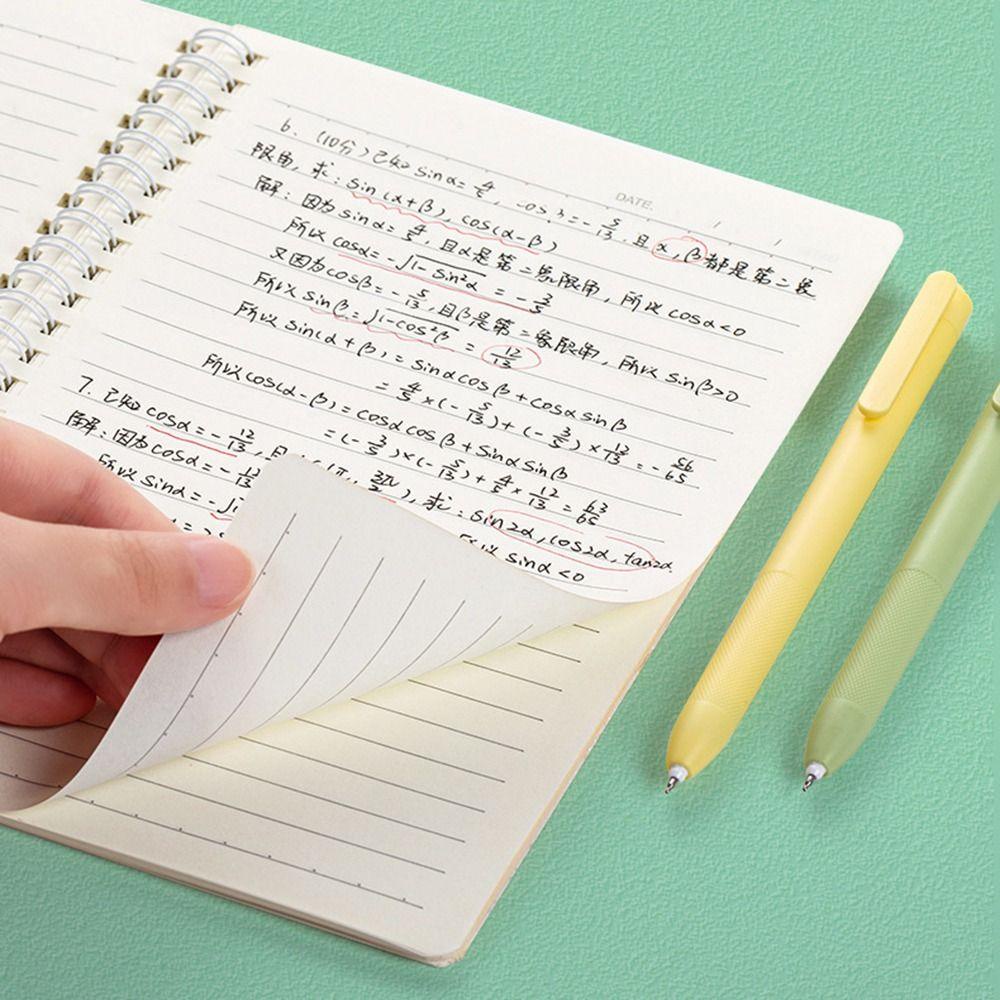 DATE. / /
6. (10分) 已知 sinα = 4/5, cosβ = -5/13, 且 α, β 都是第二象
限角, 求: sin(α+β), cos(α-β)
解: 因为 sinα = 4/5, 且 α 是第二象限角, 所以 cosα<0
所以 cosα = -√1-sin²α = -3/5
又因为 cosβ = -5/13, 且 β 是第二象限角, 所以 sinβ>0
所以 sinβ = √1-cos²β = 12/13
所以 sin(α+β) = sinαcosβ + cosαsinβ
= 4/5 × (-5/13) + (-3/5) × 12/13 = -56/65
所以 cos(α-β) = cosαcosβ + sinαsinβ
= (-3/5) × (-5/13) + 4/5 × 12/13 = 63/65
7. 已知 cosα = -12/13, 且 ), 求: sin2α, cos2α, tan2α
解: 因为 cosα = -12/13 所以 sinα<0
所以 sinα = -√1